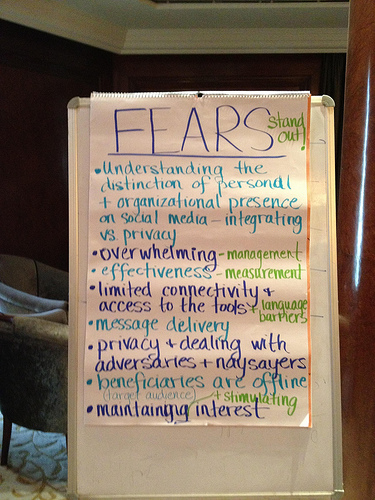 FEARS stand
out!
• Understanding the
distinction of personal
+ organizational presence
on social media - integrating
vs. privacy
• overwhelming - management
• effectiveness - measurement
• limited connectivity +
access to the tools + language
barriers
• message delivery
• privacy + dealing with
adversaries + naysayers
• beneficiaries are offline
(target audience) + stimulating
• maintaining interest